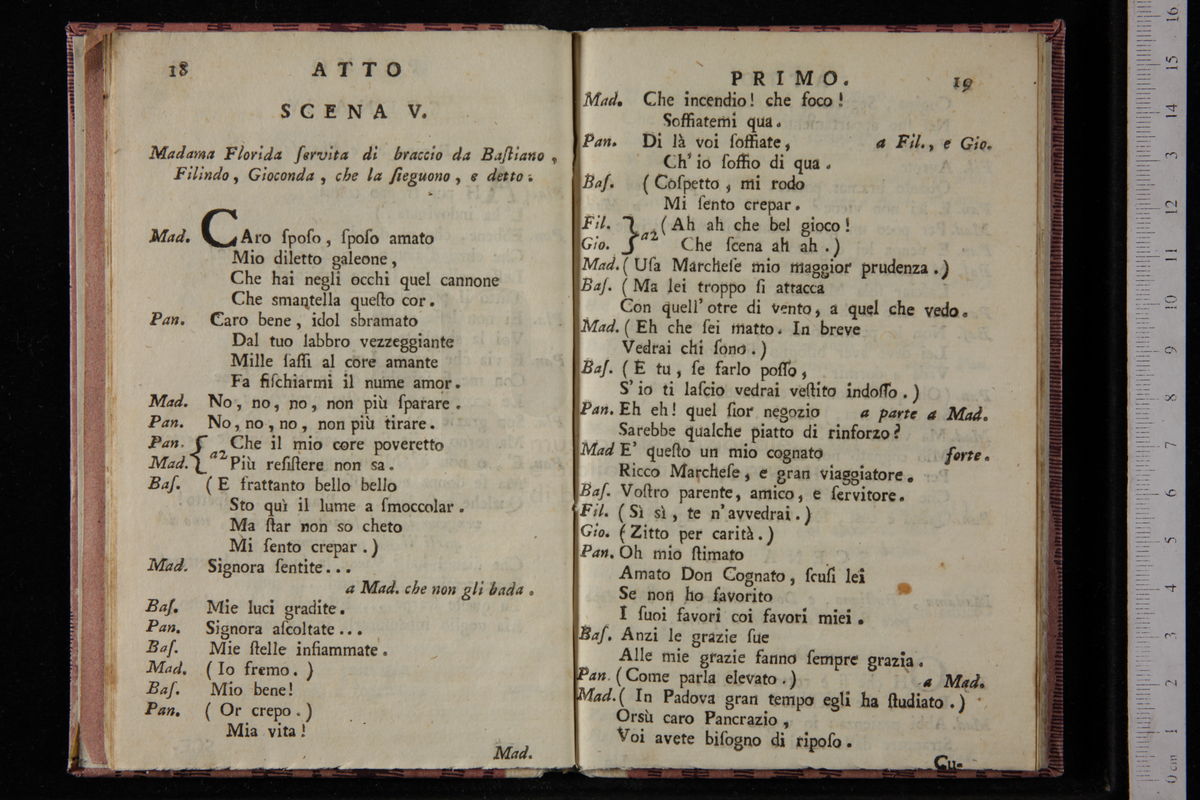 18 ATTO
SCENA V.
Madama Florida ſervita di braccio da Baſtiano,
Filindo, Gioconda, che la ſieguono, e detto.
Mad. CAro ſpoſo, ſpoſo amato
Mio diletto galeone,
Che hai negli occhi quel cannone
Che smantella queſto cor.
Pan. Caro bene, idol sbramato
Dal tuo labbro vezzeggiante
Mille ſaſſi al core amante
Fa fiſchiarmi il nume amor.
Mad. No, no, no, non più ſparare.
Pan. No, no, no, non più tirare.
Pan. { a2 Che il mio core poveretto
Mad. Più reſiſtere non sa.
Baſ. (E frattanto bello bello
Sto quì il lume a ſmoccolar.
Ma ſtar non so cheto
Mi ſento crepar.)
Mad. Signora ſentite...
a Mad. che non gli bada.
Baſ. Mie luci gradite.
Pan. Signora aſcoltate...
Baſ. Mie ſtelle infiammate.
Mad. (Io fremo.)
Baſ. Mio bene!
Pan. (Or crepo.)
Mia vita!
Mad.
PRIMO. 19
Mad. Che incendio! che foco!
Soffiatemi qua.
Pan. Di là voi ſoffiate, a Fil., e Gio.
Ch' io ſoffio di qua.
Baſ. (Coſpetto, mi rodo
Mi ſento crepar.
Fil. } a2 (Ah ah che bel gioco!
Gio. Che ſcena ah ah.)
Mad. (Uſa Marcheſe mio maggior prudenza.)
Baſ. (Ma lei troppo ſi attacca
Con quell' otre di vento, a quel che vedo.
Mad. (Eh che ſei matto. In breve
Vedrai chi ſono.)
Baſ. (E tu, ſe farlo poſſo,
S' io ti laſcio vedrai veſtito indoſſo.)
Pan. Eh eh! quel ſior negozio a parte a Mad.
Sarebbe qualche piatto di rinforzo?
Mad E' queſto un mio cognato forte.
Ricco Marcheſe, e gran viaggiatore.
Baſ. Voſtro parente, amico, e ſervitore.
Fil. (Sì sì, te n' avvedrai.)
Gio. (Zitto per carità.)
Pan. Oh mio ſtimato
Amato Don Cognato, ſcuſi lei
Se non ho favorito
I ſuoi favori coi favori miei.
Baſ. Anzi le grazie ſue
Alle mie grazie fanno ſempre grazia.
Pan. (Come parla elevato.) a Mad.
Mad. (In Padova gran tempo egli ha ſtudiato.)
Orsù caro Pancrazio,
Voi avete biſogno di ripoſo.
Cu-
0 cm 1 2 3 4 5 6 7 8 9 10 11 12 13 14 15 16